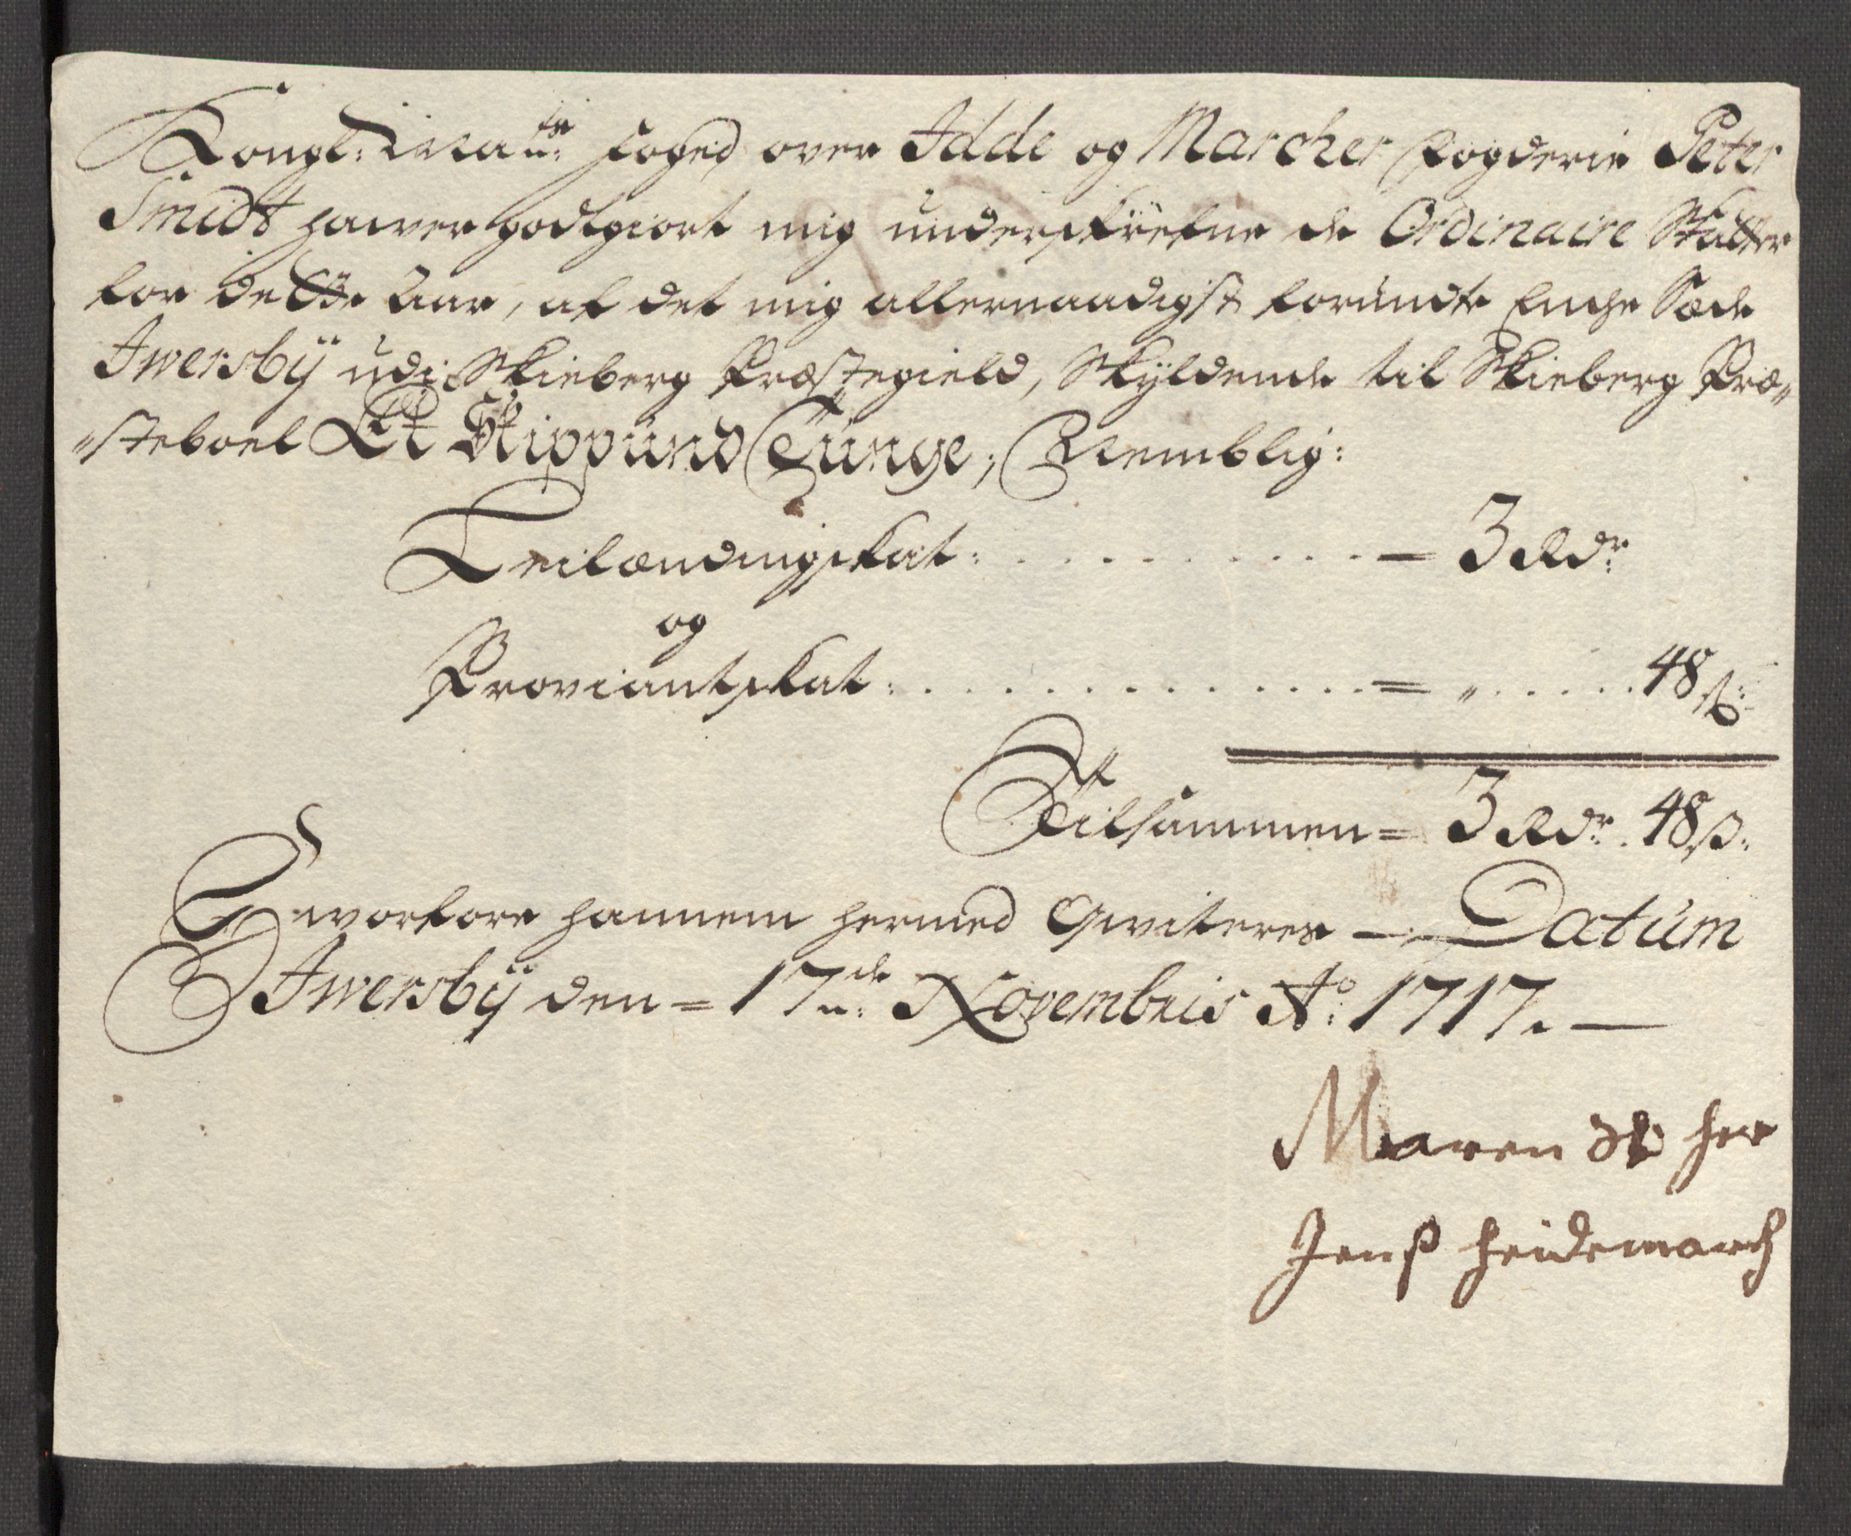 Kongl: Maÿ:ts foged over Idde og Marcher fogderie Peter
Smidt hawer godtgiort mig underskrefne de Ordinaire Skatter
for dette Aar, af det mig allernaadigst forundte Enche Sæde
Iwersbÿ udi Skieberg Præstegield, Skÿldende til Skieberg Præ„
„steboel Et Skippund Tunge, Nemblig:
Leilændingskat: . . . . . . . . . . = 3 Rdr
og
Proviantskat: . . . . . . . . . . . . . = „ . . . . . . 48 ß:
Tilsammen = 3 Rdr. 48 ß:
Hworfore hannem hermed Qwiteres — Datum
Iwersbÿ den = 17de: Novembris Ao: 1717. —
Maren Sl her
Jenß heidemarch